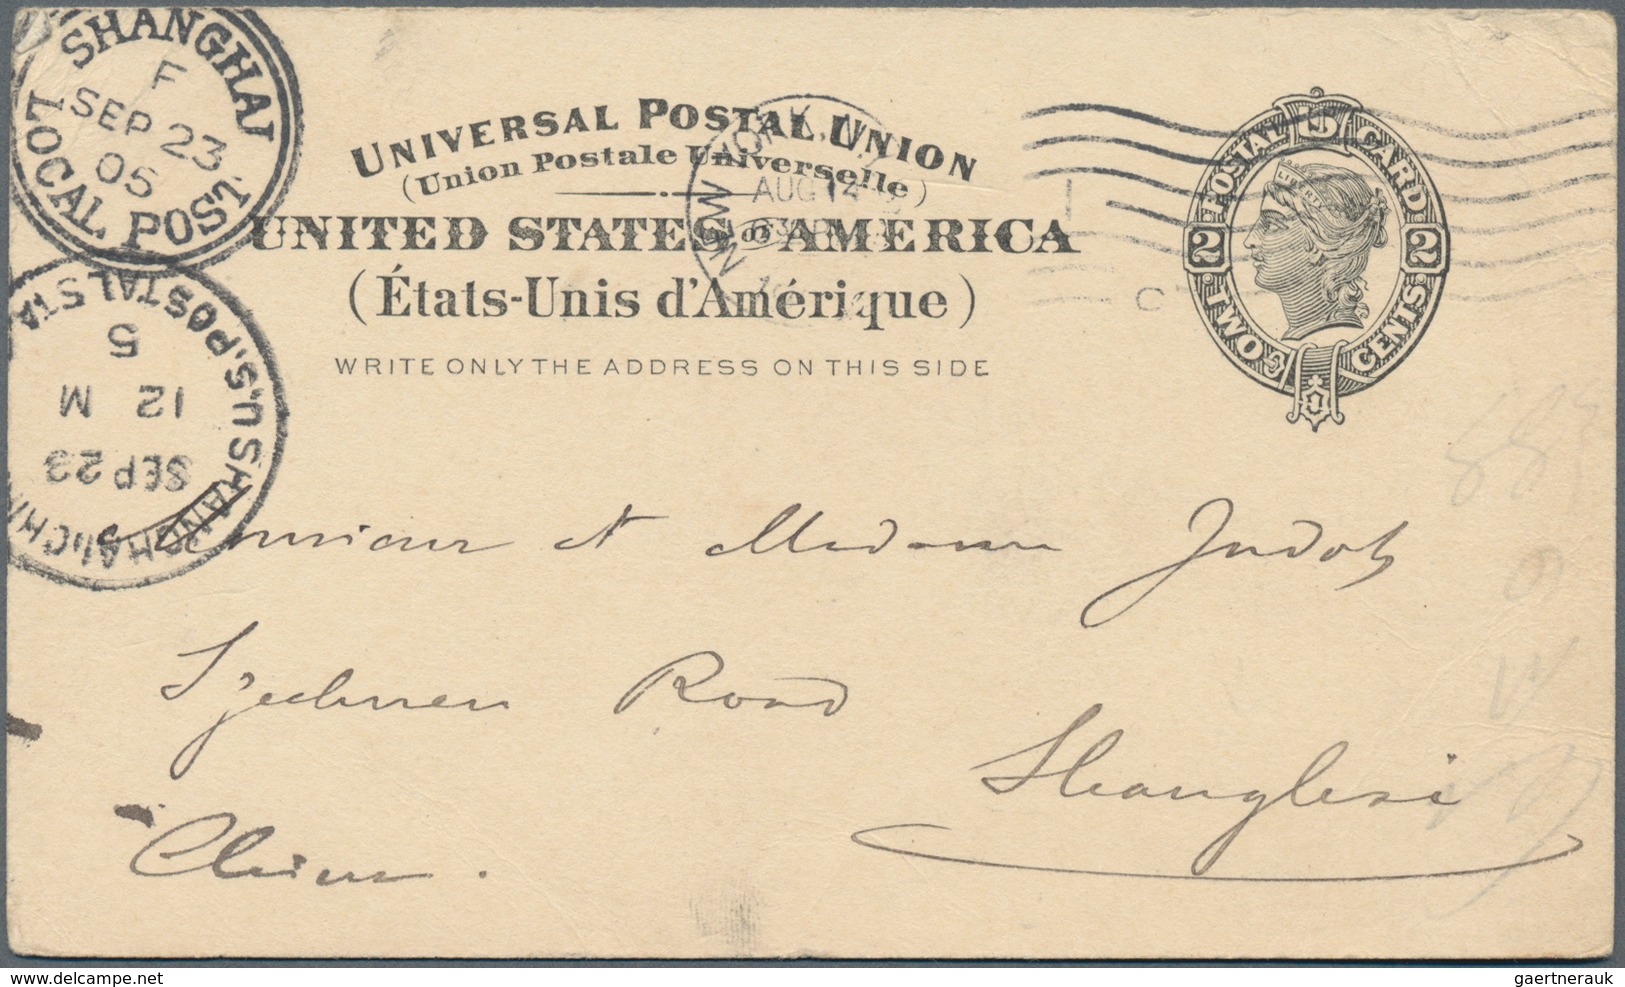 SHANGHAI
F
SEP 23
05
LOCAL POST.
UNIVERSAL POSTAL UNION
(Union Postale Universelle)
UNITED STATES OF AMERICA
(États-Unis d'Amérique)
WRITE ONLY THE ADDRESS ON THIS SIDE
NEW YORK, N.Y.
AUG 14
POSTAL U S CARD
LIBERTY
2 2
TWO CENTS
C
U.S. POSTAL STA
SHANGHAI CHI
SEP 23
12 M
5
Monsieur et Madame
Szechuen Road
Shanghai
China.
gaertnerauk